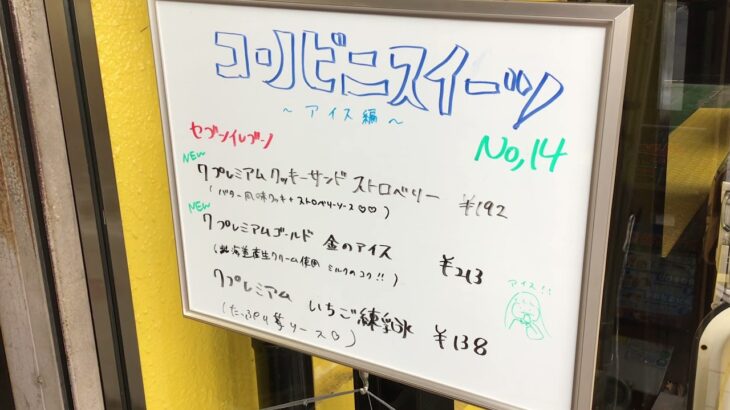 コンビニスイーツ
～アイス編～
セブンイレブン
No,14
NEW
7プレミアム クッキーサンド ストロベリー ¥192
(バター風味クッキー+ストロベリーソース♡♡)
NEW
7プレミアムゴールド 金のアイス ¥213
(北海道産生クリーム使用 ミルクのコク!!)
アイス!!
7プレミアム いちご練乳氷 ¥138
(たっぷり苺ソース♡)